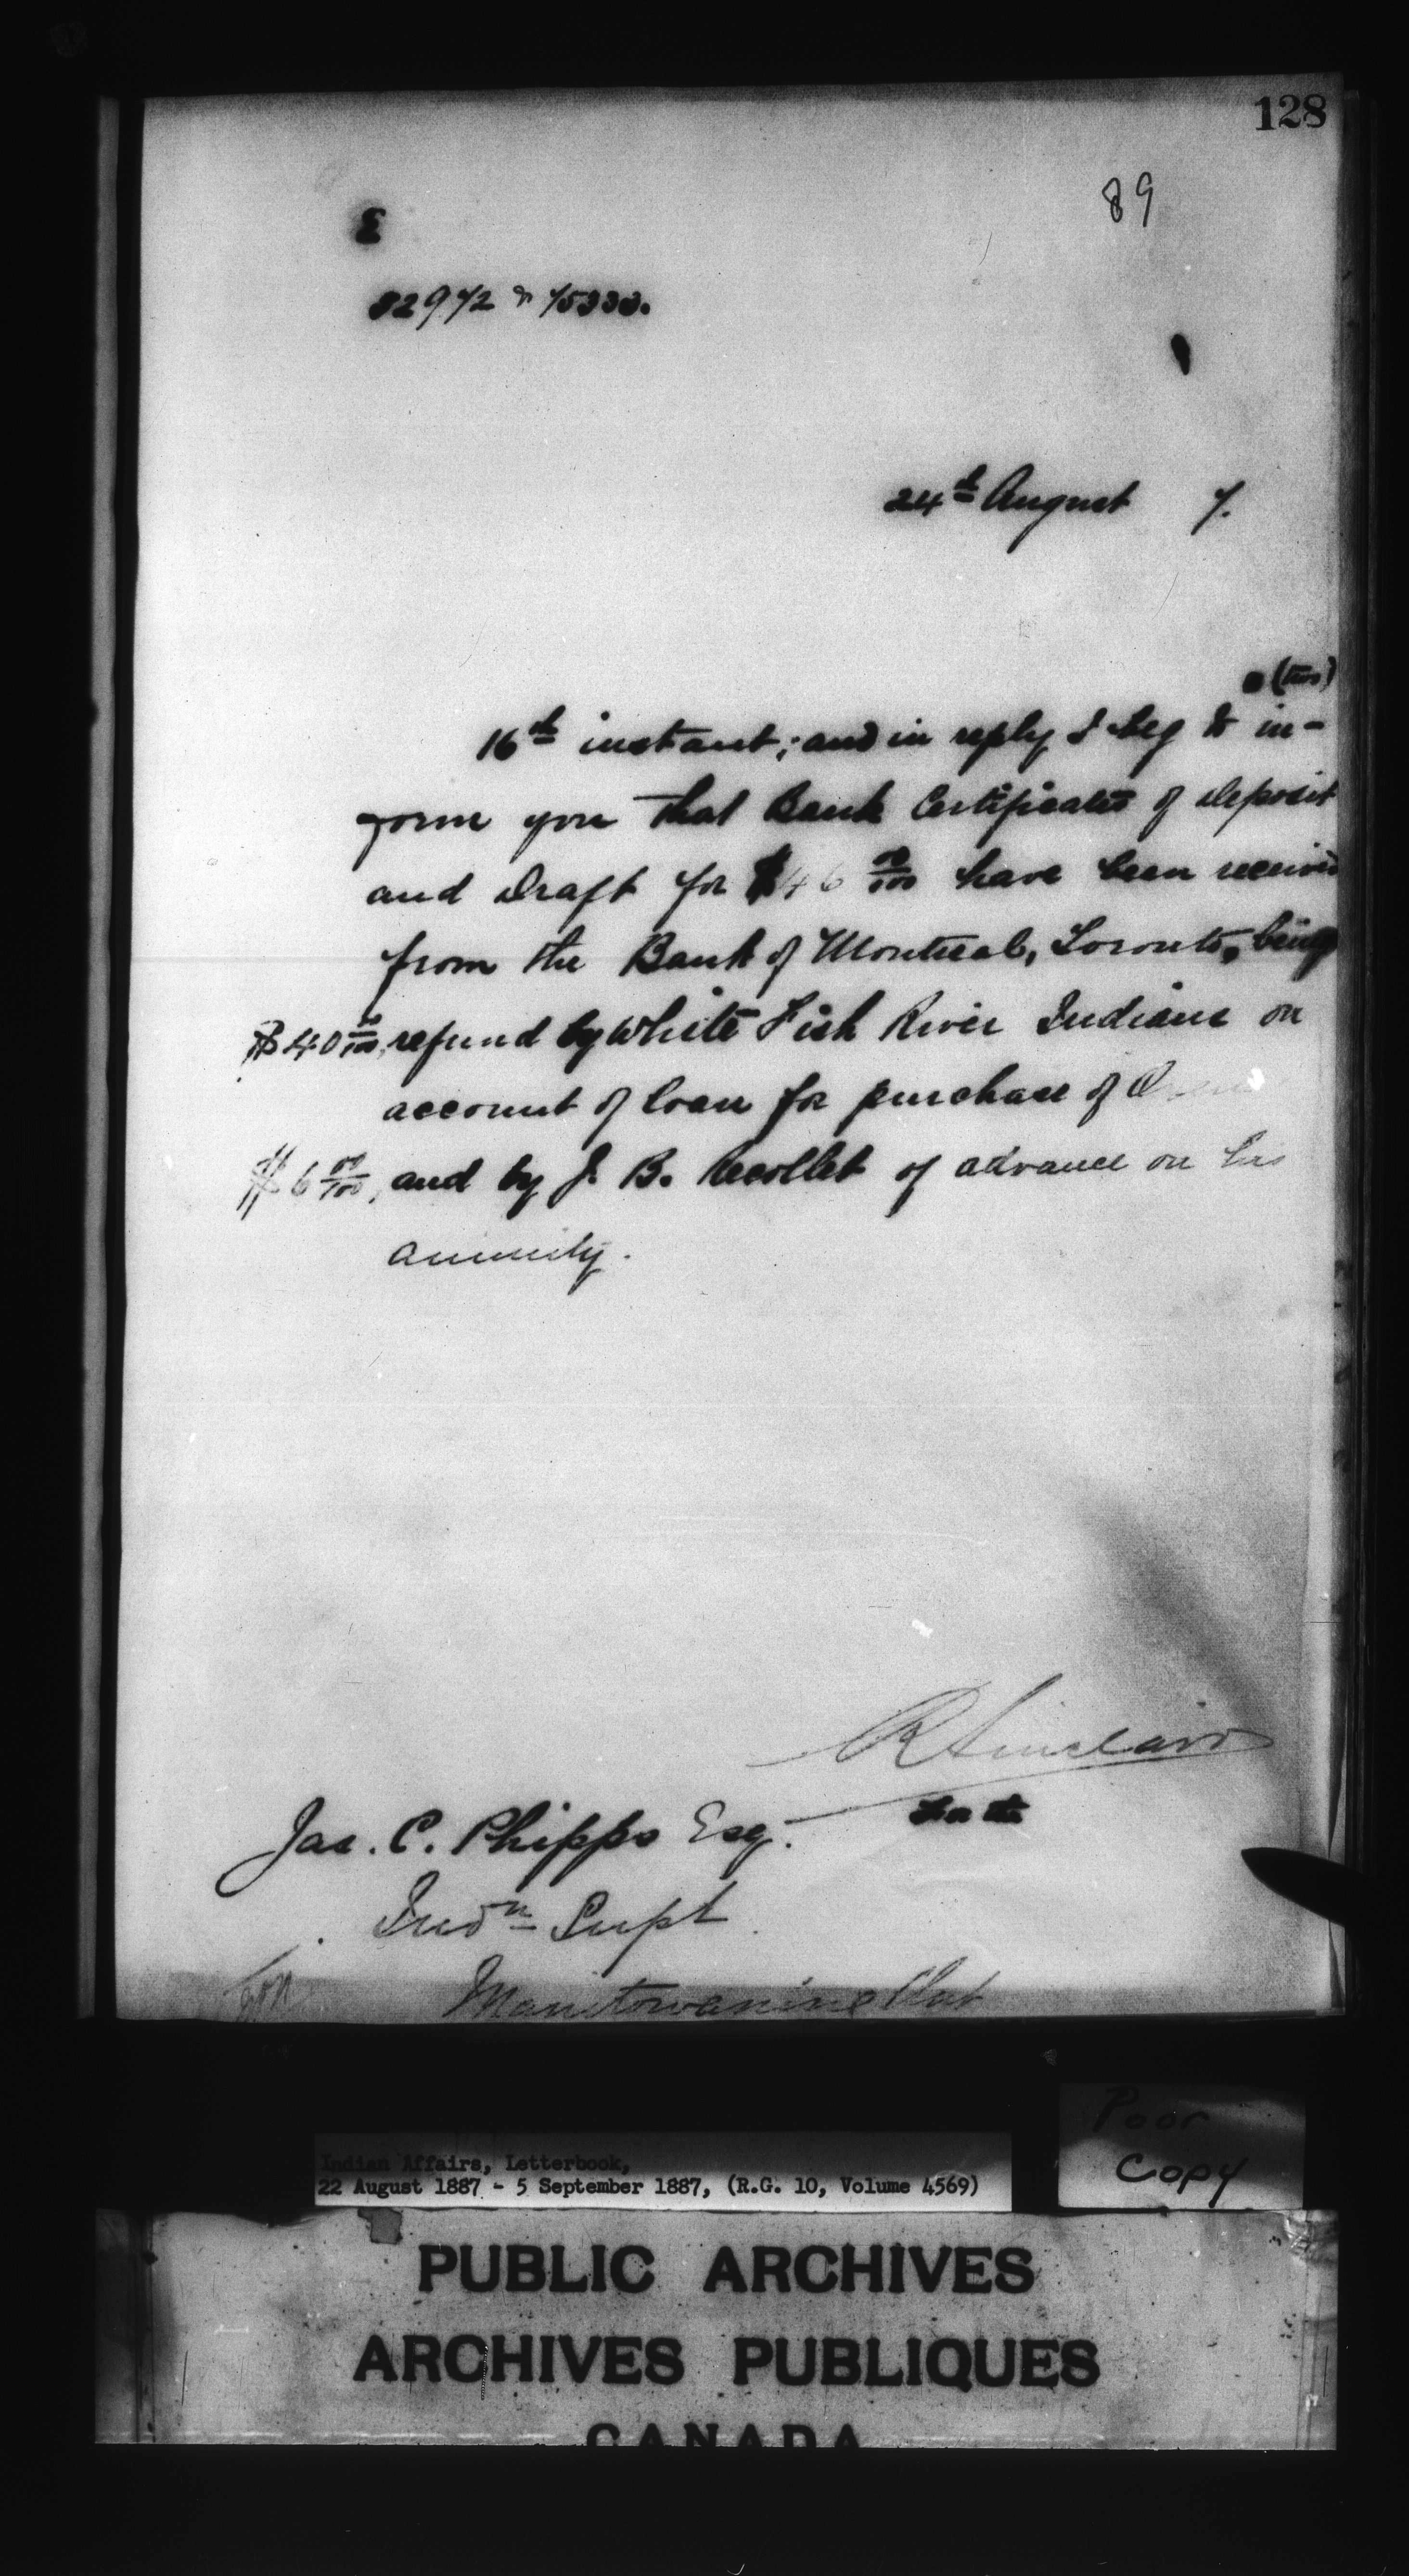 128
89
E
82972 & 75333.
24th August 7.
(two)
16th instant; and in reply I beg to in-
form you that Bank Certificates of deposit
and Draft for $46 00/100 have been received
from the Bank of Montreal, Toronto, being
$40 00/100, refund by White Fish River Indians on
account of loan for purchase of
$6 00/100, and by J. B. Recollet of advance on his
annuity.
R Sinclair
For the
Jas. C. Phipps Esq.
Indn Supt
Manitowaning Ont
Indian Affairs, Letterbook,
22 August 1887 - 5 September 1887, (R.G. 10, Volume 4569)
Poor
Copy
PUBLIC ARCHIVES
ARCHIVES PUBLIQUES
CANADA